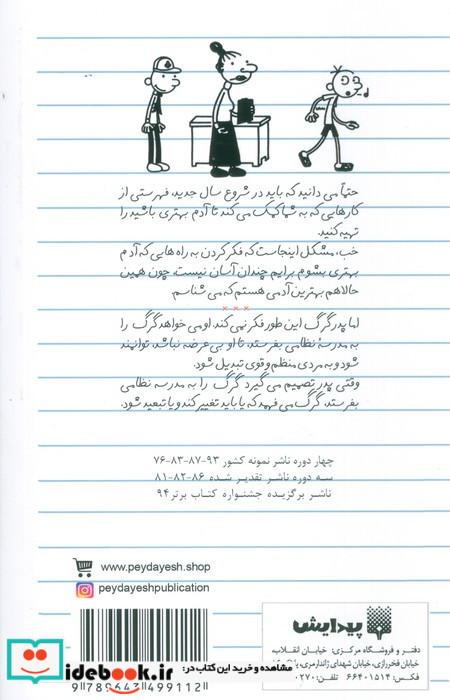 حتماً می دانید که باید در شروع سال جدید، فهرستی از
کارهایی که به شما کمک می کند تا آدم بهتری باشید را
تهیه کنید.
خب، مشکل اینجاست که فکر کردن به راه هایی که آدم
بهتری بشوم برایم چندان آسان نیست، چون همین
حالا هم بهترین آدمی هستم که می شناسم
× × ×
اما پدر گرگ این طور فکر نمی کند. او می خواهد گرگ را
به مدرسهٔ نظامی بفرستد، تا او بی عرضه نباشد، توانمند
شود و به مردی منظم و قوی تبدیل شود.
وقتی پدر تصمیم می گیرد گرگ را به مدرسه نظامی
بفرستد، گرگ می فهمد که یا باید تغییر کند و یا تبعید شود.
چهار دوره ناشر نمونه کشور ۹۳-۸۷-۸۳-۷۶
سه دوره ناشر تقدیر شده ۸۶-۸۲-۸۱
ناشر برگزیده جشنواره کتاب برتر ۹۴
www.peydayesh.shop
peydayeshpublication
پیدایش
دفتر و فروشگاه مرکزی: خیابان انقلاب،
خیابان فخررازی، خیابان شهدای ژاندارمری،
فکس: ۶۶۴۰۱۵۱۴ تلفن:
مشاهده و خرید این کتاب در:
idebook.ir
9 789642 499112